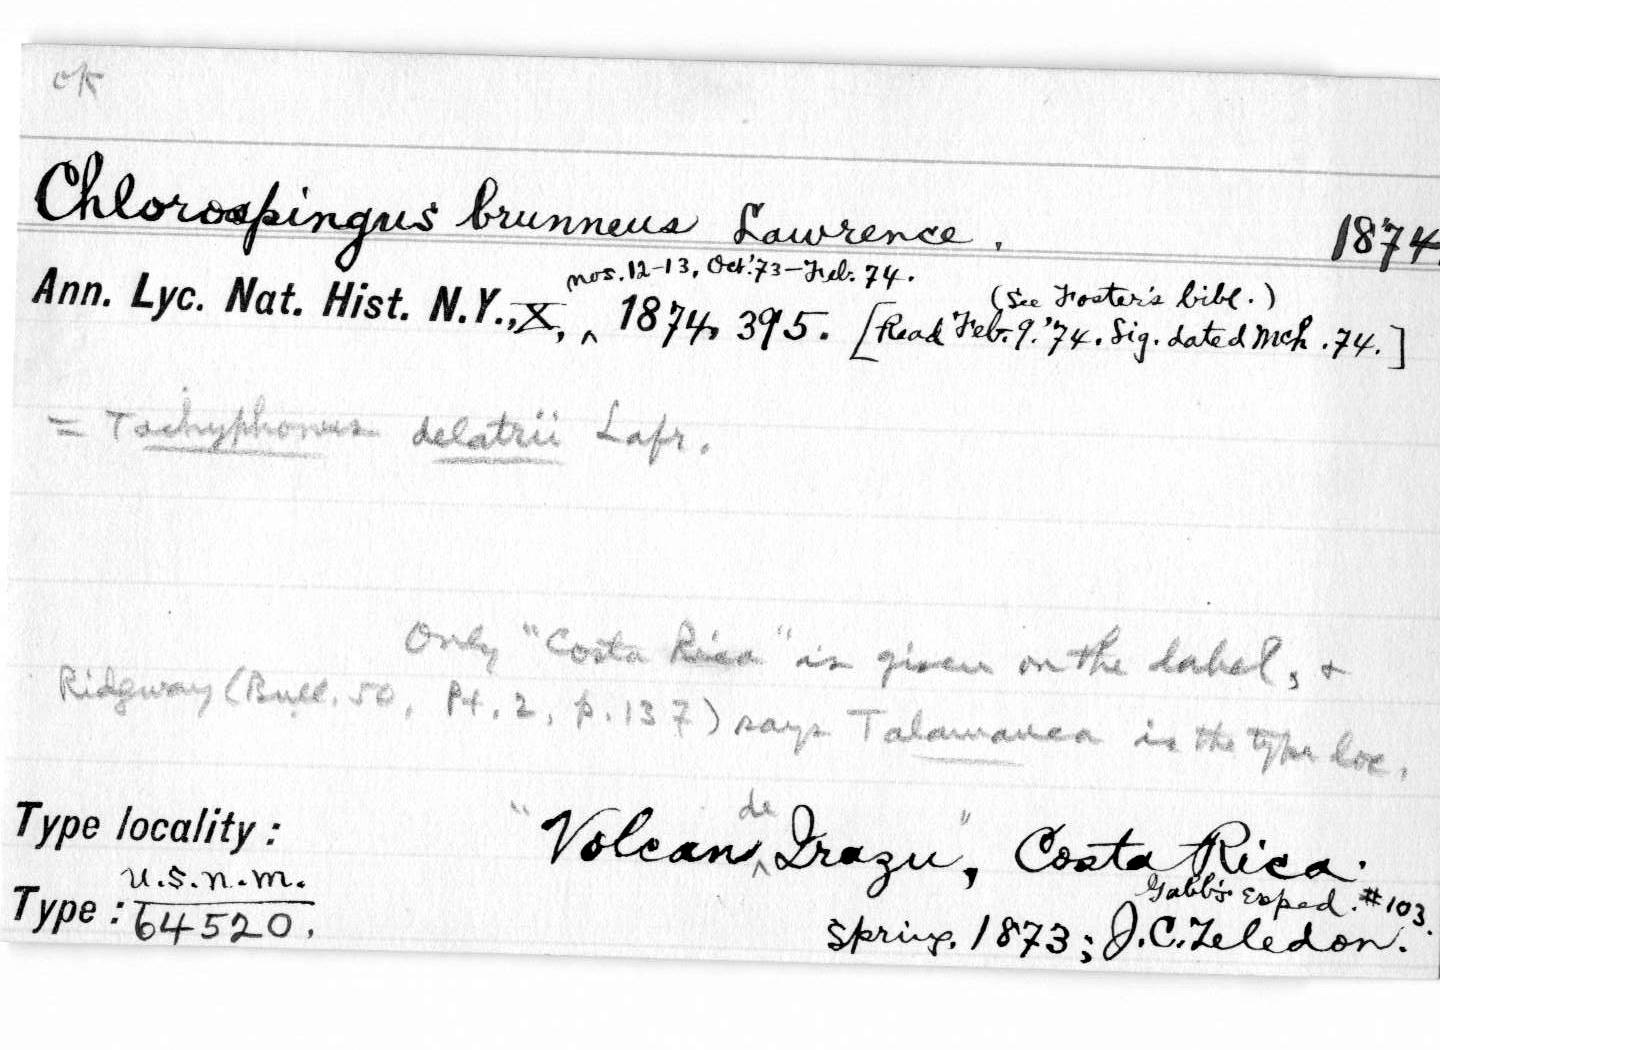 ok
Chlorospingus brunneus Lawrence. 1874.
nos. 12-13, Oct. '73-Feb. 74. (See Foster's bibl.)
Ann. Lyc. Nat. Hist. N.Y., X, ^ 1874, 395. [Read Feb. 9. '74. Sig. dated Mch. 74.]
= Tachyphonus delatrii Lafr.
Only "Costa Rica" is given on the label, &
Ridgway (Bull. 50, Pt. 2, p. 137) says Talamanca is the type loc.
Type locality: "Volcan ^de Irazu", Costa Rica.
U.S.N.M. Gabb's Exped. #103.
Type: 64520. Spring, 1873; J.C. Zeledon.